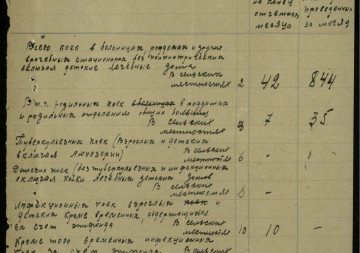 на конец отчетного месяца
проведенных за месяц
Всего коек в больницах роддомах и других
врачебных стационарах без психиатрических
включая детские лечебные дома
В сельских
местностях 2 42 844
В т.ч. родильных коек в роддомах
и родильных отделениях общих больниц
В сельских
местностях 7 35
Туберкулезных коек (взрослых и детских
включая
В сельских
местностях 6 -
Детских коек (без туберкулезных и инфекционных
включая койки лечебных детских домов
В сельских
местностях 8 -
Инфекционных коек взрослых и
детских кроме временных, содержащихся
за счет
В сельских
местностях 10 10 -
Кроме того временных инфекционных
коек за счет
В сельских